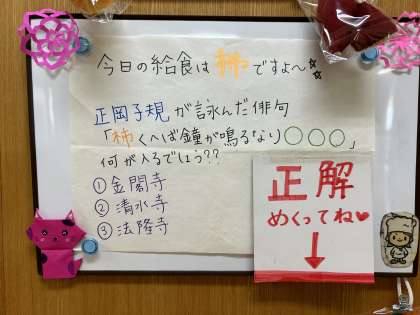 今日の給食は柿ですよ〜☆☆
正岡子規が詠んだ俳句
「柿くへば鐘が鳴るなり〇〇〇」
何が入るでしょう??
①金閣寺
②清水寺
③法隆寺
正解
めくってね♥
↓